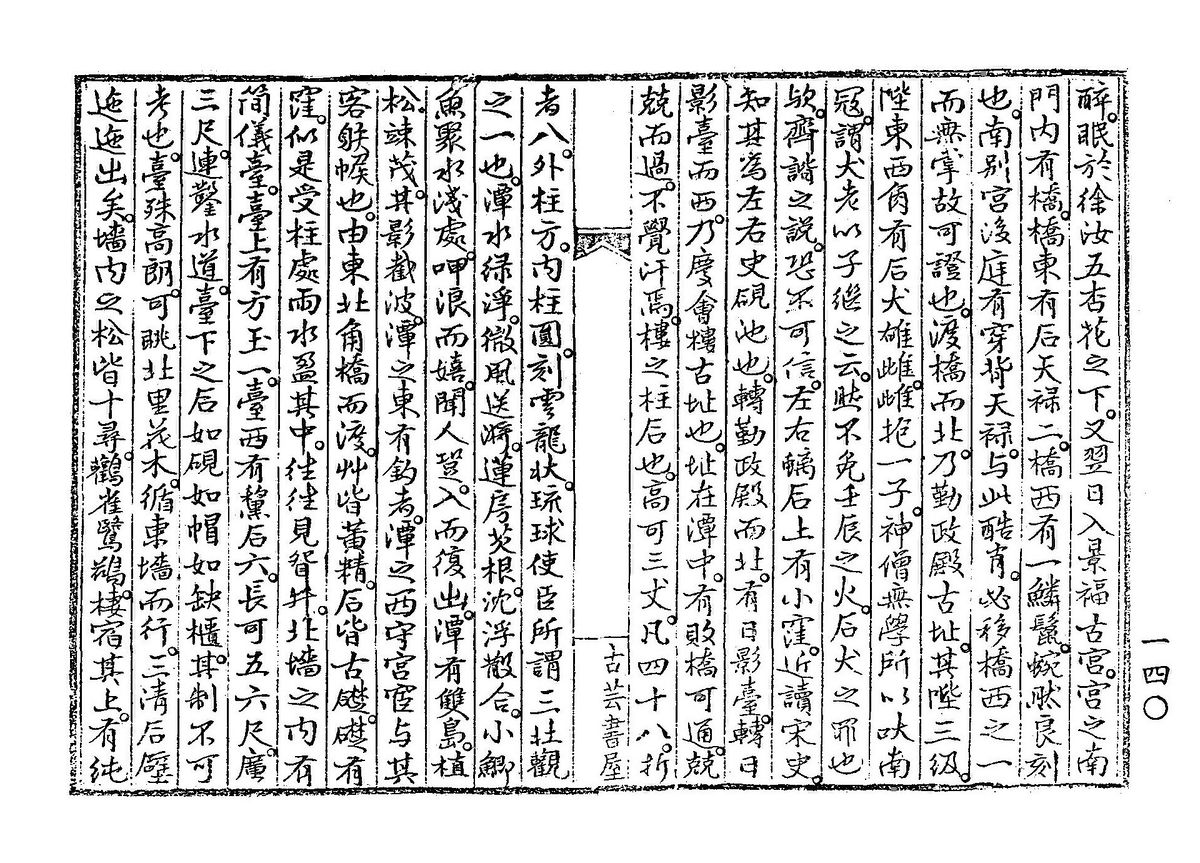 醉。眠於徐汝五杏花之下。又翌日入景福古宮。宮之南
門内有橋。橋東有石天禄二。橋西有一。鱗鬣蜿然良刻
也。南别宮後庭有穿背天禄。与此酷肖。必移橋西之一
而無掌故可證也。渡橋而北。乃勤政殿古址。其陛三級。
陛東西角有石犬雄雌。雌抱一子。神僧無學所以吠南
冦。謂犬老以子繼之云。然不免壬辰之火。石犬之罪也
欤。齊諧之説。恐不可信。左右螭石上有小窪。近讀宋史。
知其為左右史硯池也。轉勤政殿而北。有日影臺。轉日
影臺而西。乃慶會樓古址也。址在潭中。有敗橋可通。兢
兢而過。不覺汗焉。樓之柱石也。高可三丈。凡四十八。折
古芸書屋
者八。外柱方。内柱圓。刻雲龍狀。琉球使臣所謂三壯觀
之一也。潭水緑淨。微風送漪。蓮房芡根。沈浮散合。小鯽
魚聚水淺處。呷浪而嬉。聞人跫。入而復出。潭有雙島。植
松。竦茂。其影截波。潭之東有釣者。潭之西守宮宦与其
客射帿也。由東北角橋而渡。艸皆黃精。石皆古礎。礎有
窪。似是受柱處。雨水盈其中。往往見眢井。北墻之内有
简儀臺。臺上有方玉一。臺西有黧石六。長可五六尺。廣
三尺。連鑿水道。臺下之石如硯如帽如缺櫃。其制不可
考也。臺殊高朗。可眺北里花木。循東墻而行。三清石壁
迤迤出矣。墻内之松皆十尋。鸛雀鷺鶿。棲宿其上。有純
一四〇